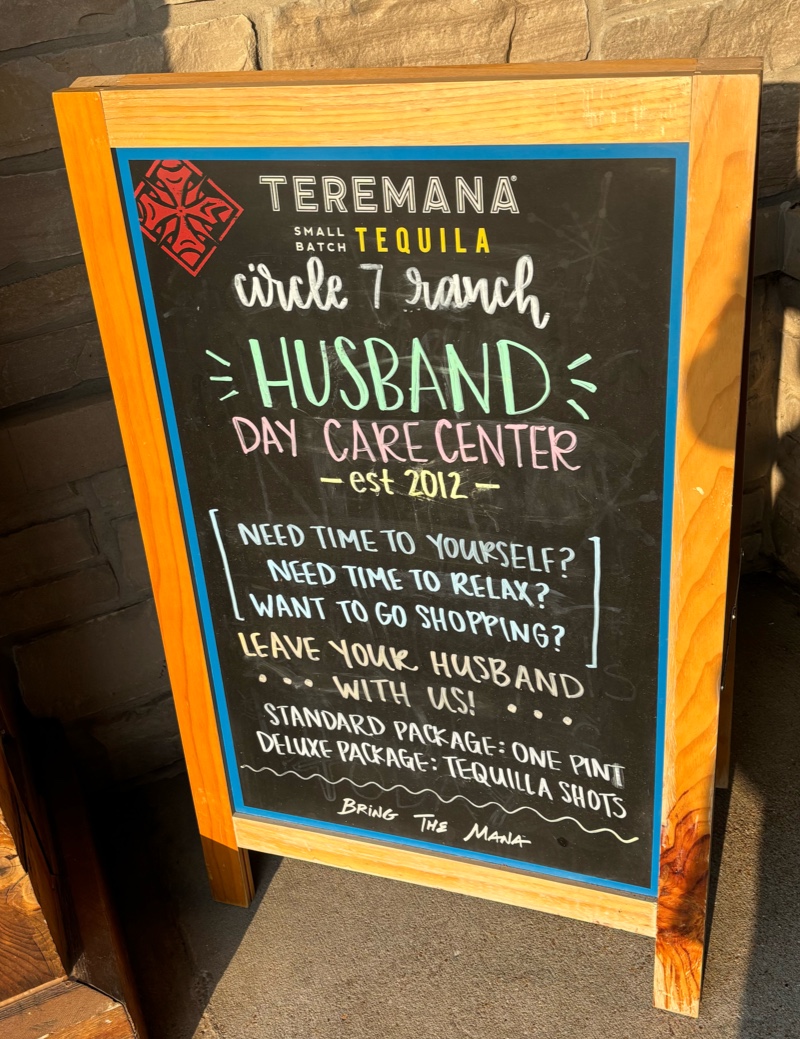 TEREMANA®
SMALL BATCH TEQUILA
circle 7 ranch
HUSBAND
DAY CARE CENTER
- est 2012 -
NEED TIME TO YOURSELF?
NEED TIME TO RELAX?
WANT TO GO SHOPPING?
LEAVE YOUR HUSBAND
... WITH US! ...
STANDARD PACKAGE: ONE PINT
DELUXE PACKAGE: TEQUILLA SHOTS
BRING THE MANA